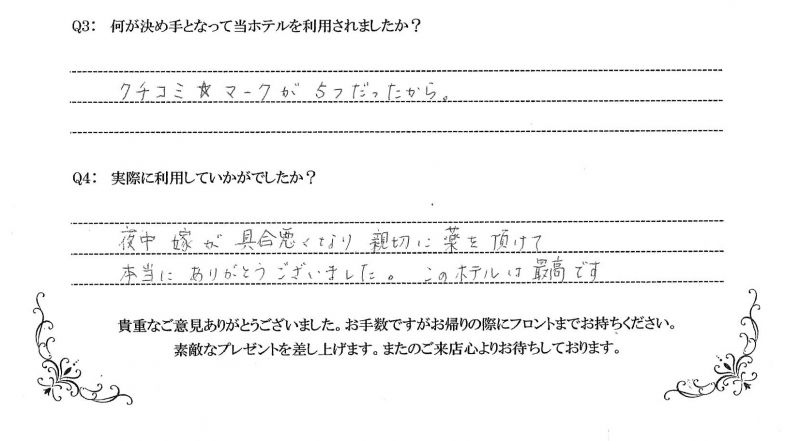 Q3： 何が決め手となって当ホテルを利用されましたか？
クチコミ ☆ マークが 5つだったから。
Q4： 実際に利用していかがでしたか？
夜中 嫁が 具合悪くなり 親切に 薬を 頂けて
本当に ありがとうございました。 このホテルは 最高です
貴重なご意見ありがとうございました。お手数ですがお帰りの際にフロントまでお持ちください。
素敵なプレゼントを差し上げます。またのご来店心よりお待ちしております。